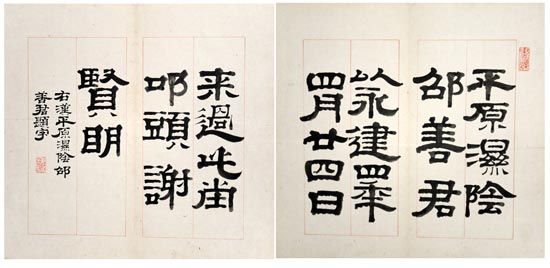 平原濕陰
邵善君
以永建四年
四月廿四日
来過此堂
叩頭謝
賢明
右漢平原濕陰邵
善君題字